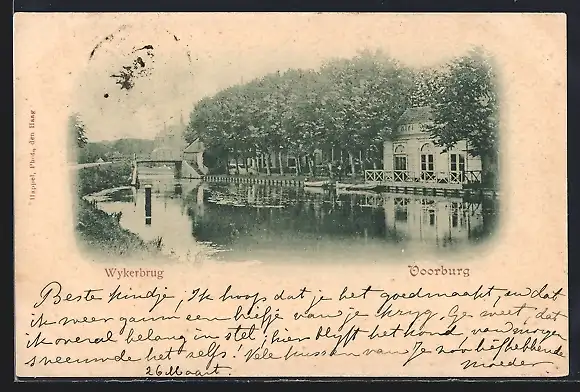 Happel, Phot., den Haag
Wykerbrug
Voorburg
Beste kindje, Ik hoop dat je het goed maakt, en dat
ik weer gauw een briefje van je kryg. Je weet, dat
ik overal belang in stel; hier blyft het koud, van morgen
sneeuwde het zelfs. Vele kussen van Je zoo liefhebbende
26 Maart. moeder